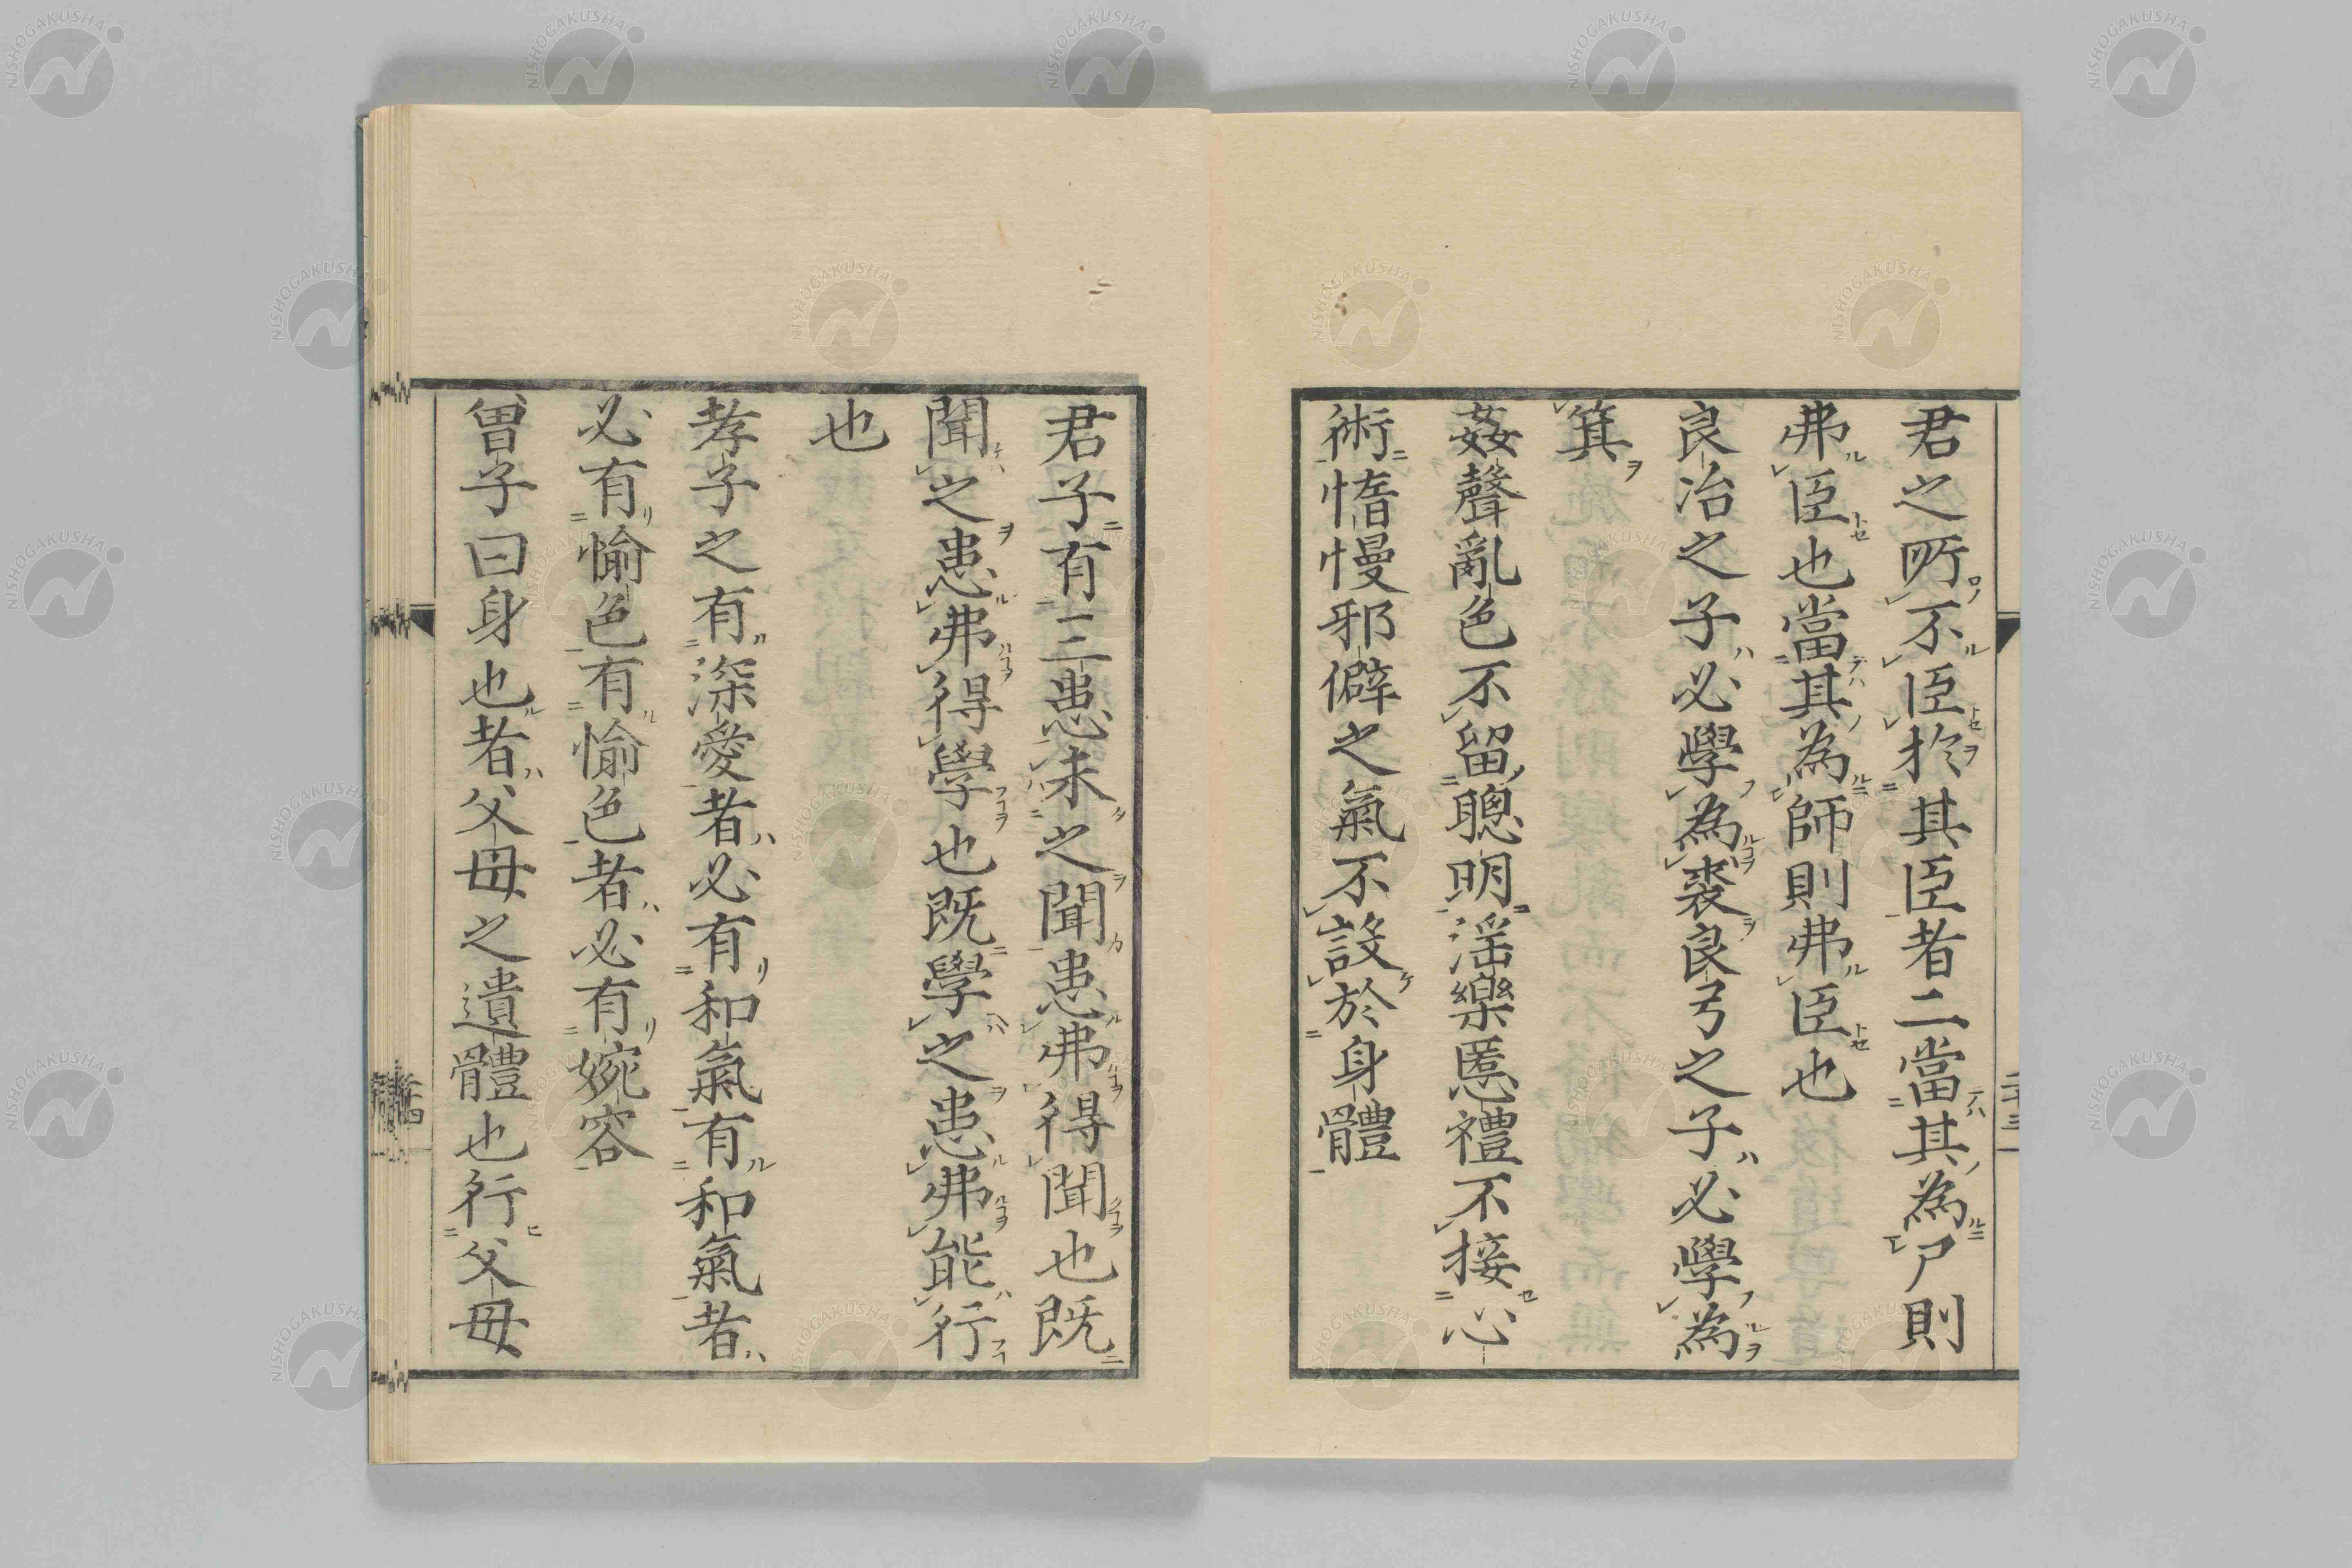 君之所不臣於其臣者二當其為尸則
弗臣也當其為師則弗臣也
良冶之子必學為裘良弓之子必學為
箕
姦聲亂色不留聰明淫樂慝禮不接心
術惰慢邪僻之氣不設於身體
二十三
君子有三患未之聞患弗得聞也既
聞之患弗得學也既學之患弗能行
也
孝子之有深愛者必有和氣有和氣者
必有愉色有愉色者必有婉容
曾子曰身也者父母之遺體也行父母
NISHOGAKUSHA